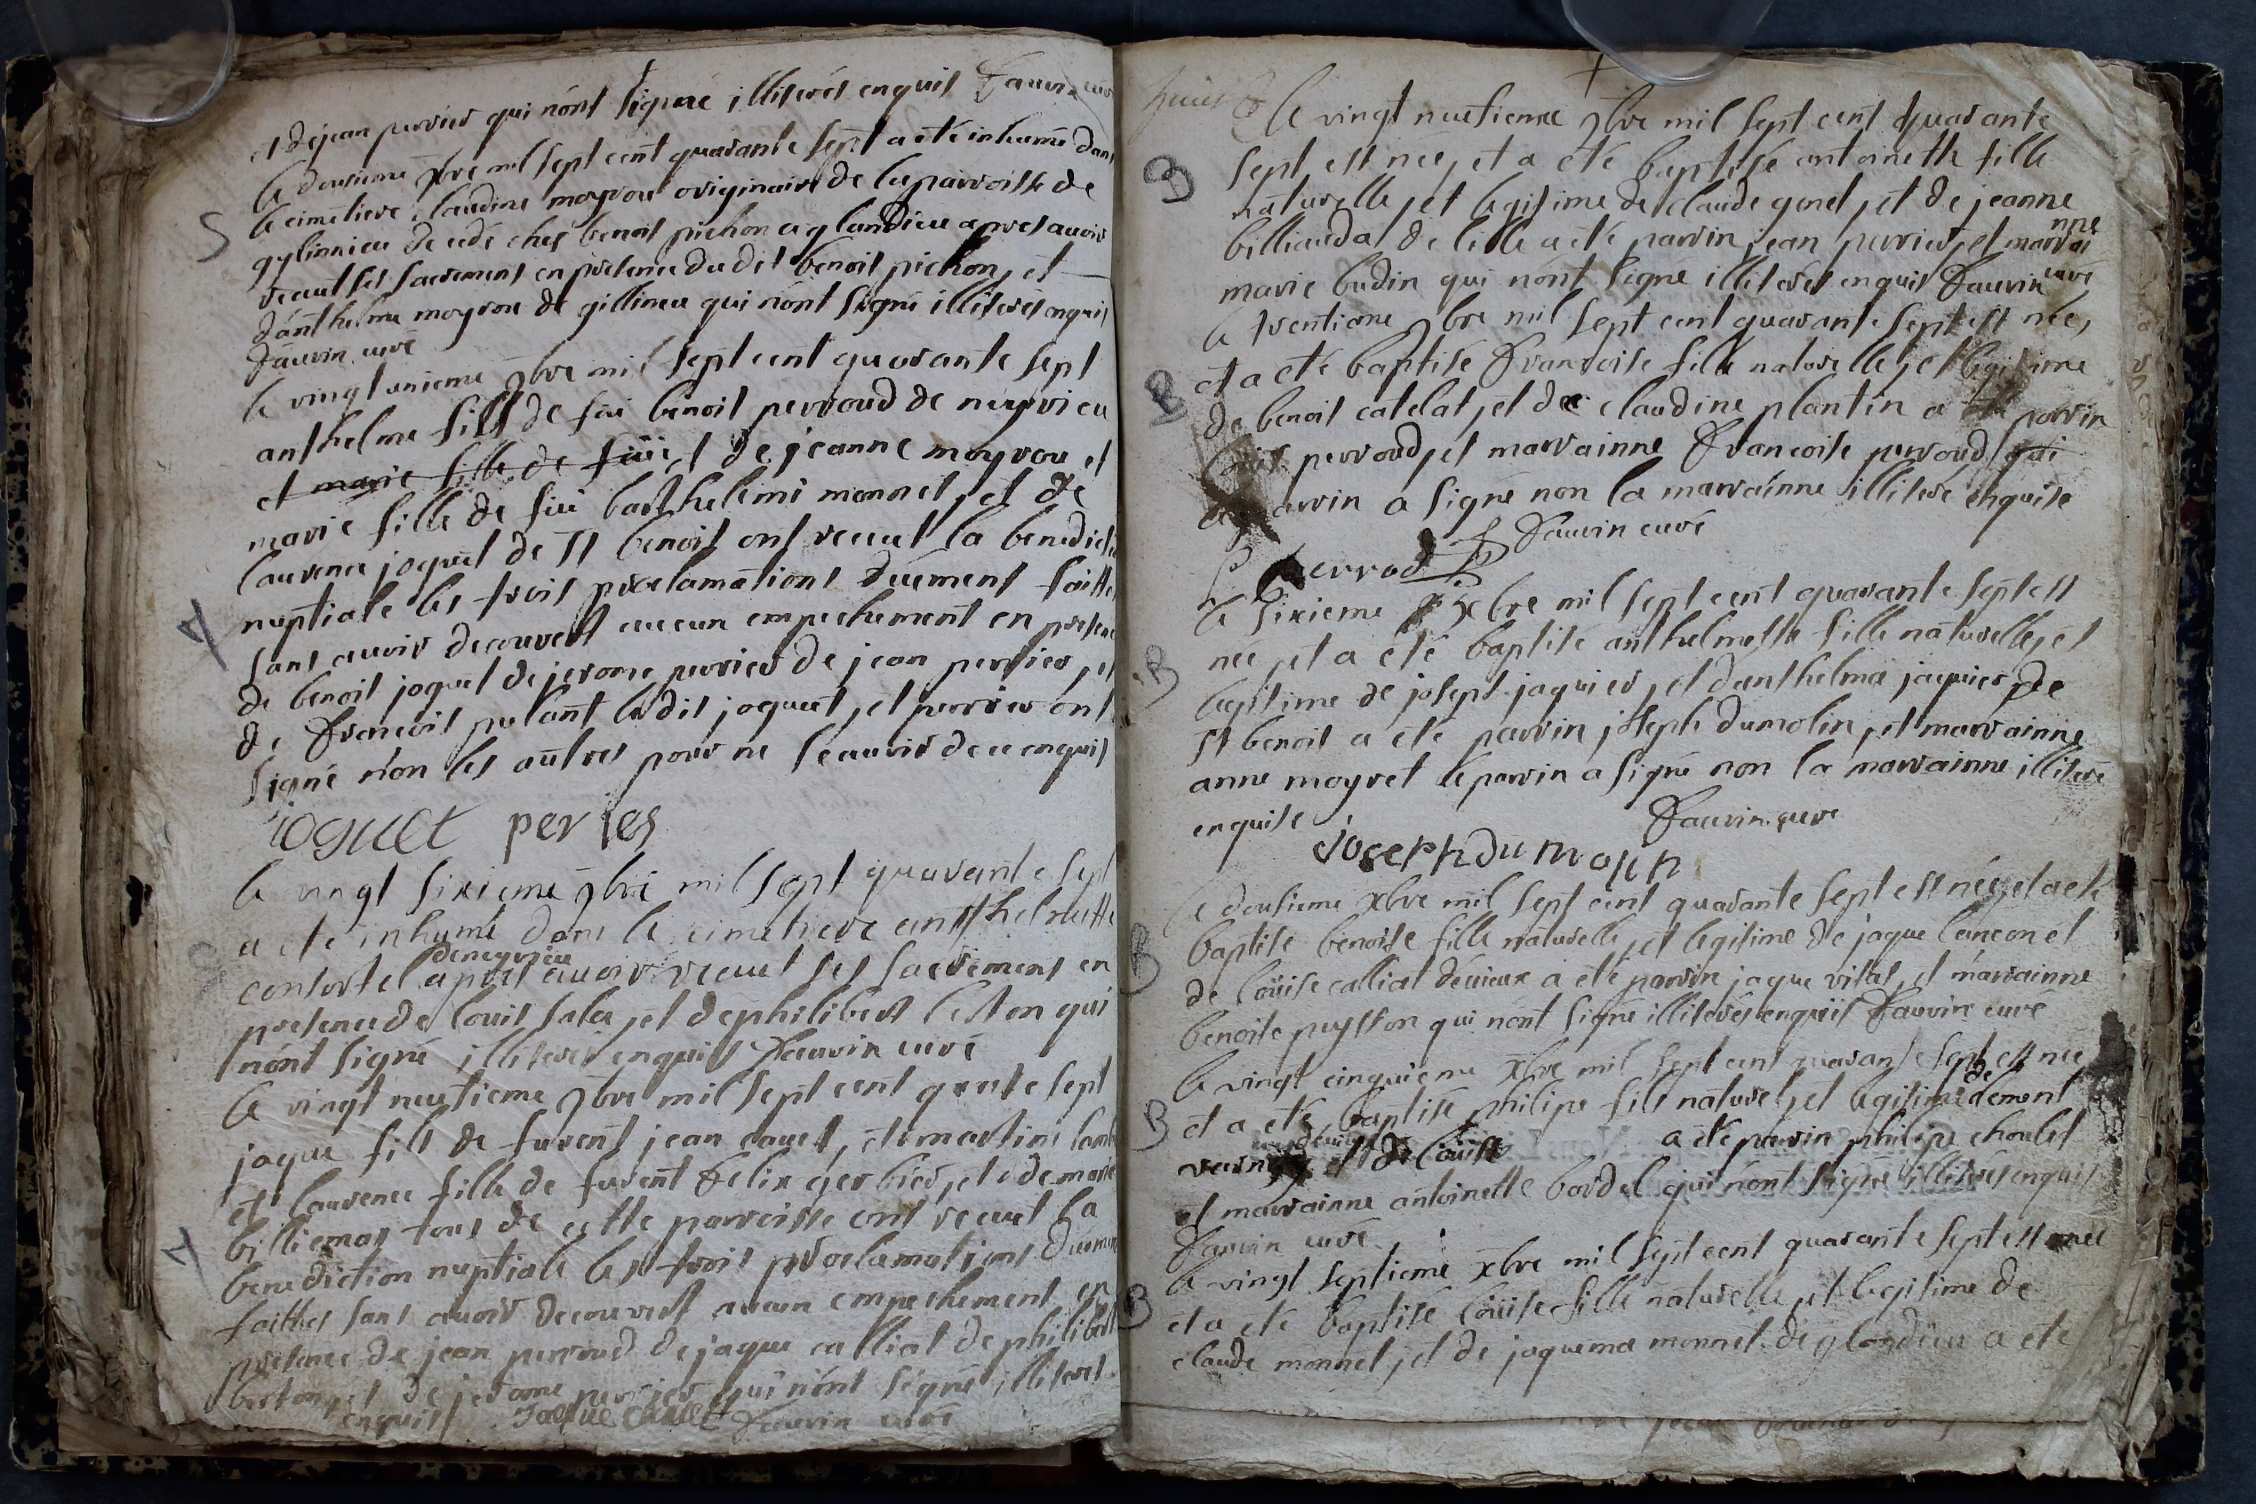 et de jean perrier qui nónt signé illiterés enquis Fauvin curé
le dousieme xbre mil sept cent quarante sept a eté inhumé dans
le cimetiere claudine moyrou originaire de la parroisse de
gylinnieu decedé chés benoit pichon a glandieu apres avoir
receut ses sacrements en presence dudit benoit pichon, et
dánthelme moyrou de gillineu qui nónt signé illiterés enquis
Fauvin curé
le vingt unieme 9bre mil sept cent quarante sept
anthelme fils de fúú benoit perroud de neyrieu
et marie fille de fúú et de jeanne moyrou et
marie fille de fúú barthelemi monnet, et de
laurence joquet de st benoit ont receut la benedict
nuptiale les trois proclamations duement faittes
sans avoir decouvert aucun empechement en presence
de benoit joquet de jerome perrier de jean perrier, et
de Francois pulant ledit joquet, et perrier ont
signé nón les autres pour ne scauvir de ce enquis
ioguet peries
le vingt sixieme 9bre mil sept quarante sept
a eté inhumé dans le cimetiere anthelmette
deneyrieu
confort et apres avoir receut ses sacrements en
presence de louis sala, et de philibert beston qui
nónt signé illiterés enquis Fauvin curé
le vingt neufieme 9bre mil sept cent qrante sept
jaque fils de furent jean cauet, et martine
et laurence fille de furent Felix gerbier, et de marie
billiemas tous de cette parroisse ont receut la
benediction nuptiale les trois proclamations duement
faittes sans avoir decouvert aucun empechement en
presence de jean perroud de jaque calliat de philibert
beston, et de jerome perrier qui nónt signé illiterés
enquis Jaque cauet Fauvin curé
le vingt neufieme 9bre mil sept cent quarante
B sept est née, et a eté baptisé antoinette fille
naturelle, et legitime de claude genet, et de jeanne
billiaudat de lelle a eté parrin jean perrier, et marrai
nne
marie budin qui nónt signé illiterés enquis Fauvin curé
le trentieme 9bre mil sept cent quarante sept est née,
B et a eté baptisé Francoise fille naturelle, et legitime
de benoit catelat, et de claudine plantin a eté parrin
louis perroud, et marrainne Francoise perroud qui
le parrin a signé non la marrainne illiteré enquise
Fauvin curé
L perrod
le sixieme xbre mil sept cent quarante sept est
B née, et a eté baptisé anthelmette fille naturelle, et
legitime de josept jaquier, et danthelma jaquier de
st benoit a eté parrin joseph dumolin, et marrainne
anne moyret le parrin a signé non la marrainne illiteré
enquise Fauvin curé
Joseph du molin
le dousieme xbre mil sept cent quarante sept est née, et a eté
B baptisé benoite fille naturelle, et legitime de jaque lancon et
de loúise calliat dévieux a eté parrin jaque vital, et marrainne
benoite puysson qui nónt signé illiterés enquis Fauvin curé
le vingt cinquieme xbre mil sept cent quarante sept est née
B et a eté baptisé philipe fils naturel, et legitime de clement
et de loúise a eté parrin philipe choulet
et marrainne antoinette bordel qui nónt signé illiterés enquis
Fauvin curé
le vingt septieme xbre mil sept cent quarante sept est née
B et a eté baptisé loúise fille naturelle, et legitime de
claude monnet, et de jaquema monnet de glandieu a eté